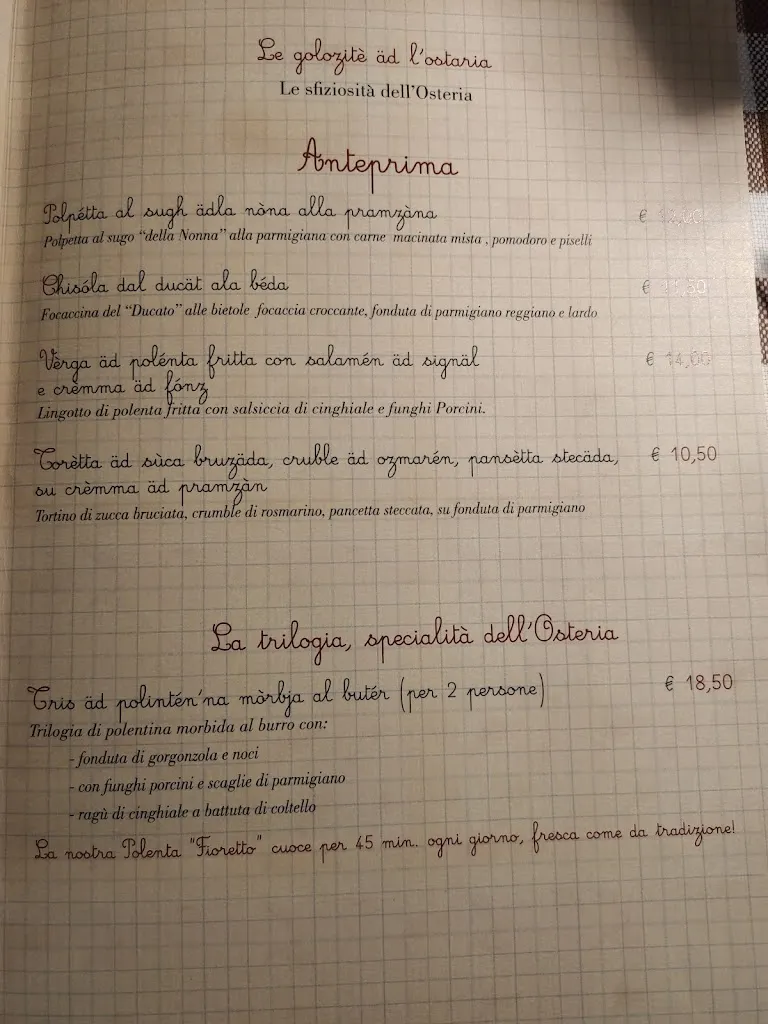 Le golozitè äd l'ostaria
Le sfiziosità dell'Osteria
Anteprima
Polpétta al sugh ädla nòna alla pramzàna €
Polpetta al sugo "della Nonna" alla parmigiana con carne macinata mista , pomodoro e piselli
Chisóla dal ducät ala béda €
Focaccina del "Ducato" alle bietole focaccia croccante, fonduta di parmigiano reggiano e lardo
Vèrga äd polénta fritta con salamén äd signäl € 14,00
e crèmma äd fónz
Lingotto di polenta fritta con salsiccia di cinghiale e funghi Porcini.
Torètta äd sùca bruzäda, cruble äd ozmarén, pansètta stecäda, € 10,50
su crèmma äd pramzàn
Tortino di zucca bruciata, crumble di rosmarino, pancetta steccata, su fonduta di parmigiano
La trilogia, specialità dell'Osteria
Tris äd polintén'na mòrbja al butér (per 2 persone) € 18,50
Trilogia di polentina morbida al burro con:
- fonduta di gorgonzola e noci
- con funghi porcini e scaglie di parmigiano
- ragù di cinghiale a battuta di coltello
La nostra Polenta "Fioretto" cuoce per 45 min. ogni giorno, fresca come da tradizione!